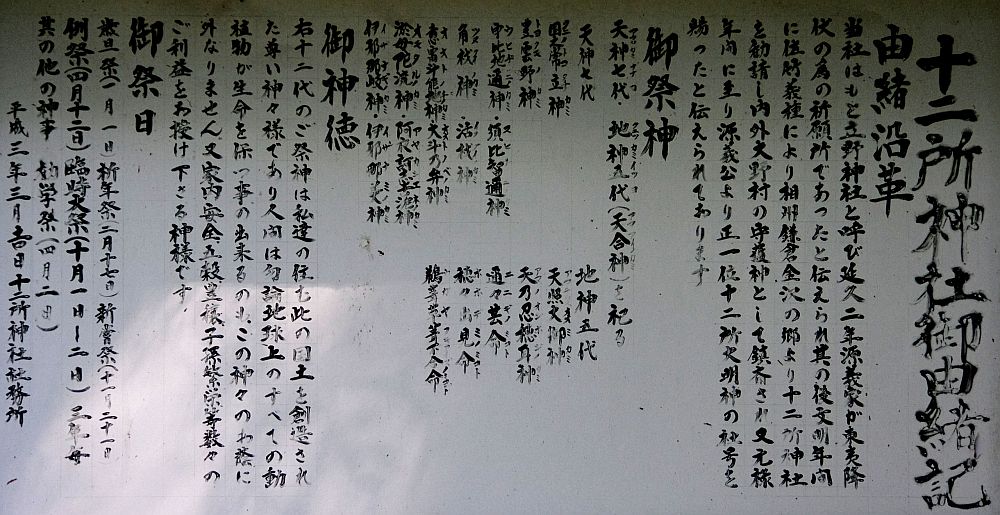 十二所神社御由緒記
由緒沿革
当社はもと立野神社と呼び延久二年源義家が東夷降
伏の為の祈願所であったと伝えられ其の後文明年間
に佐竹義種により相州鎌倉金沢の郷より十二所神社
を勧請し内外大野村の守護神として鎮斎され又元禄
年内に至り源義公より正一位十二所大明神の社号を
賜ったと伝えられております
御祭神
天神七代 地神五代(天合神)を祀る
天神七代
国常立神
豊雲野神
宇比地邇神・須比智邇神
角杙神・活杙神
意富斗能地神・大斗乃弁神
淤母陀流神・阿夜訶志古泥神
伊邪那岐神・伊邪那美神
地神五代
天照大御神
天乃忍穂耳神
邇々芸命
穂々出見命
鵜葺草葺不合命
御神徳
右十二代のご祭神は私達の住む此の国土を創造され
た尊い神々様であり人間は勿論地球上のすべての動
植物が生命を保つ事の出来るのも、この神々のお蔭に
外なりません又家内安全五穀豊穣子孫繁栄等数々の
ご利益をお授け下さる神様です。
御祭日
歳旦祭(一月一日)祈年祭(二月十七日)新嘗祭(十一月二十一日)
例祭(四月十二日)臨時大祭(十月一日〜二日)三年毎
其の他の神事 勧学祭(四月二日)
平成三年三月吉日十二所神社社務所